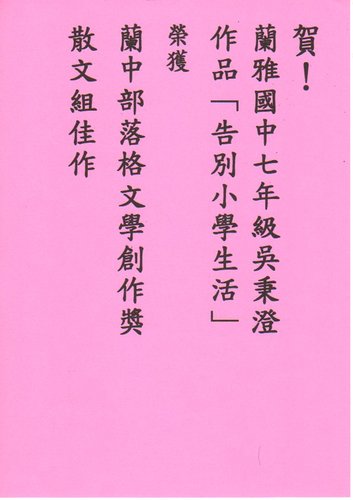 賀！
蘭雅國中七年級吳秉澄
作品「告別小學生活」
榮獲
蘭中部落格文學創作獎
散文組佳作